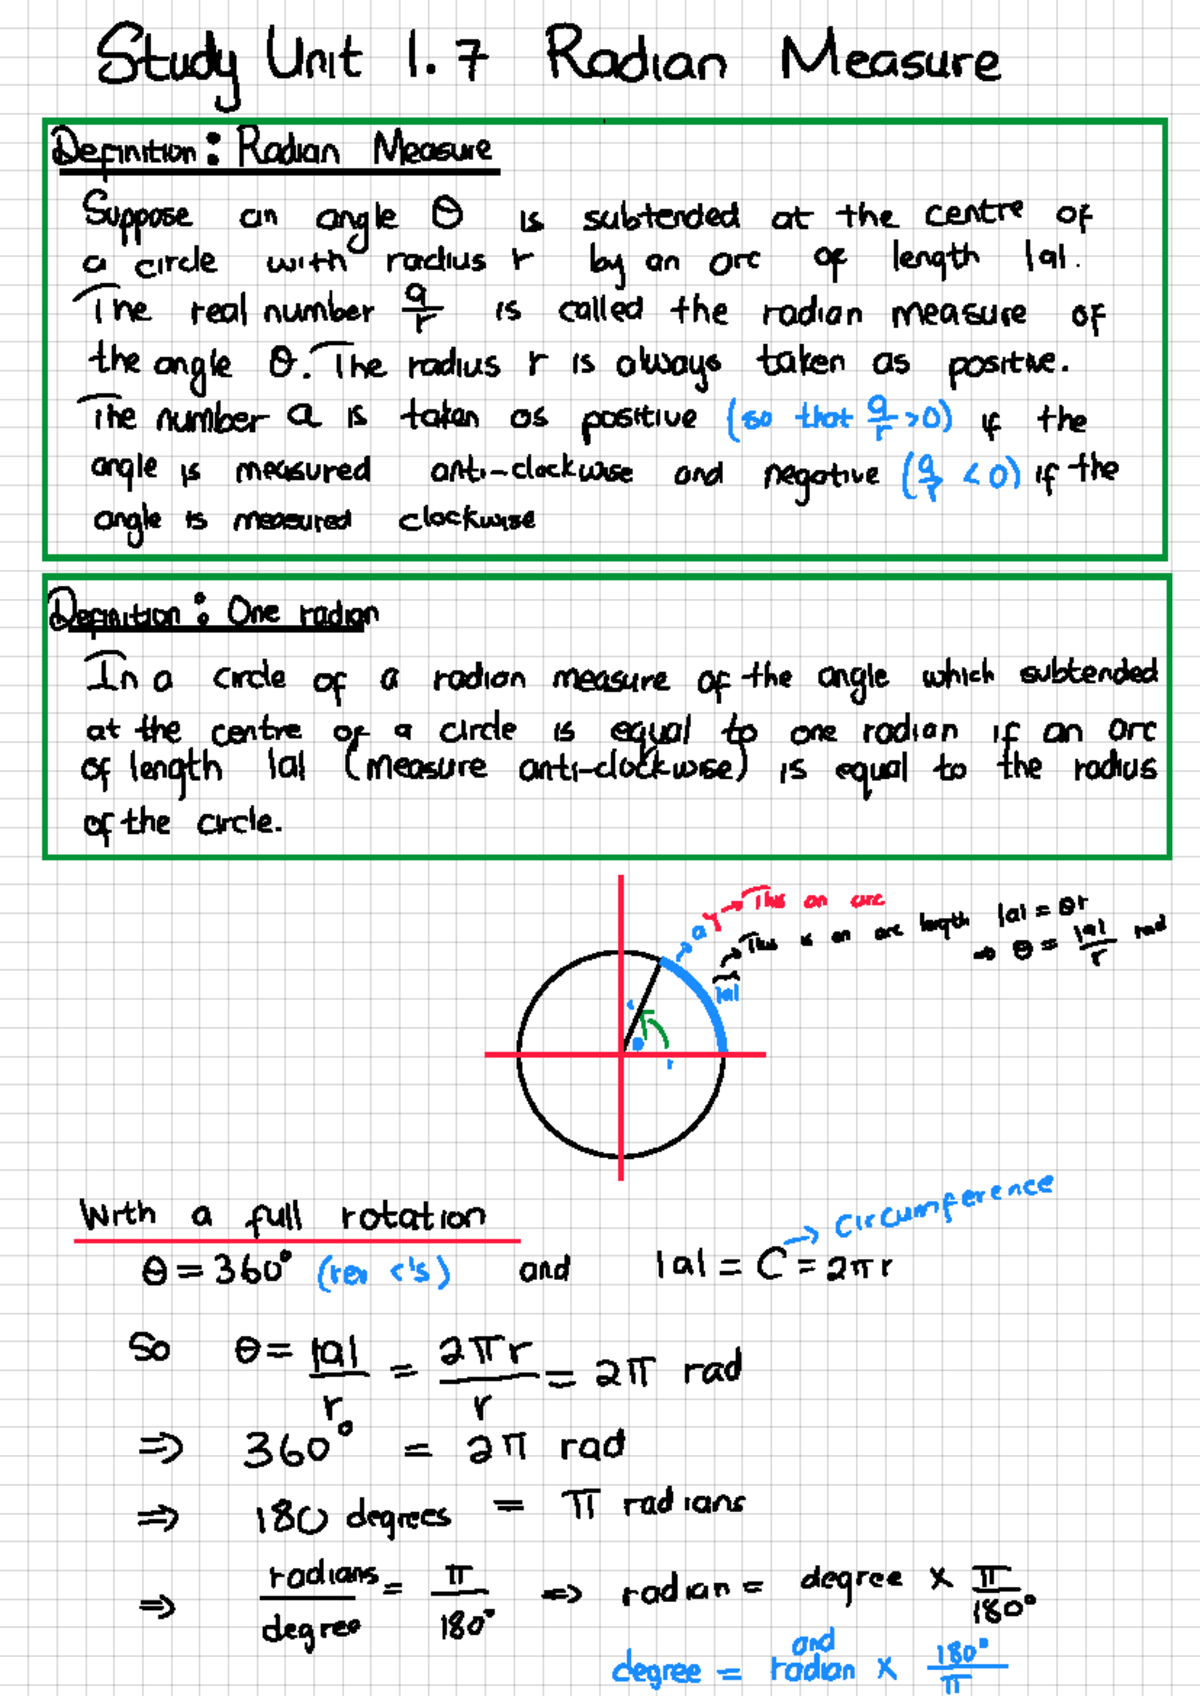 Study Unit 1.7 Radian Measure
Definition: Radian Measure
Suppose an angle θ is subtended at the centre of
a circle with radius r by an arc of length |a|.
The real number a/r is called the radian measure of
the angle θ. The radius r is always taken as positive.
The number a is taken as positive (so that a/r >0) if the
angle is measured anti-clockwise and negative (a/r < 0) if the
angle is measured clockwise
Definition: One radian
In a circle of a radian measure of the angle which subtended
at the centre of a circle is equal to one radian if an arc
of length |a| (measure anti-clockwise) is equal to the radius
of the circle.
a → This an arc
|a| → This is an arc length |a| = θr
⇒ θ = |a|/r rad
r
θ
r
With a full rotation
→ circumference
θ = 360° (rev c's) and |a| = C = 2πr
So θ = |a|/r = 2πr/r = 2π rad
⇒ 360° = 2π rad
⇒ 180 degrees = π radians
⇒ radians/degree = π/180° ⇒ radian = degree × π/180°
and
degree = radian × 180°/π